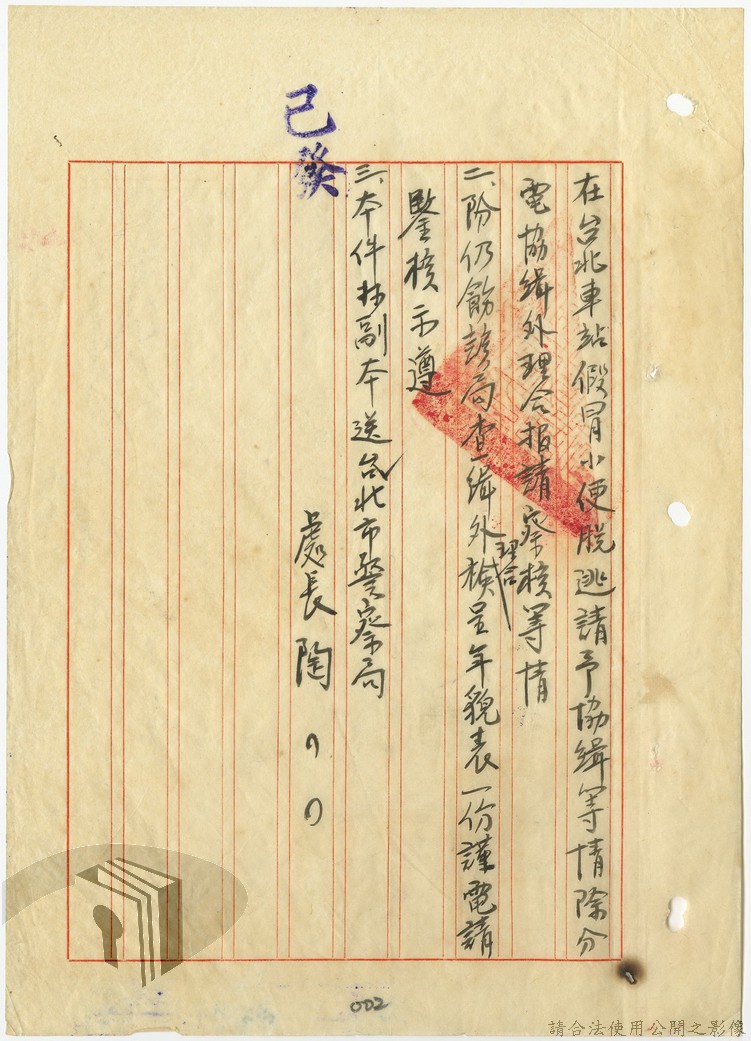 在台北車站假冒小便脫逃請予協緝等情除分
電協緝外理合报請察核等情
二、除仍飭該局查緝外理合檢呈年貌表一份謹電請
鑒核示遵
三、本件抄副本送台北市警察局
處長陶
己發
002
請合法使用公開之影像